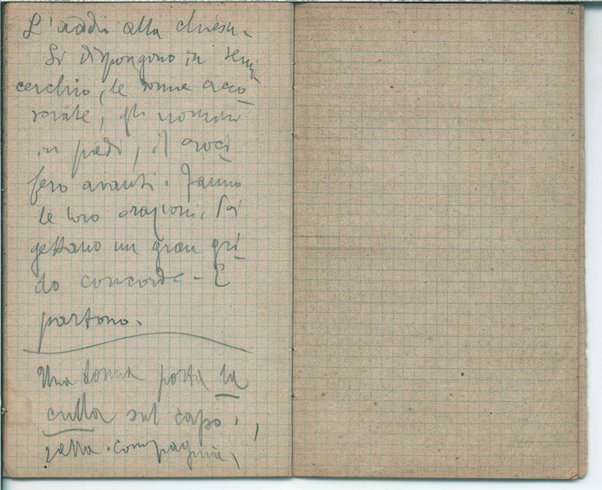 L'addio alla chiesa.
Si dispongono in semi
cerchio, le donne acco
sciate, gli uomini
in piedi, il croci
fero avanti. Fanno
le loro orazioni. Poi
gettano un gran gri
do concorde - E
partono.
Una donna porta la
culla sul capo.
compagnie,